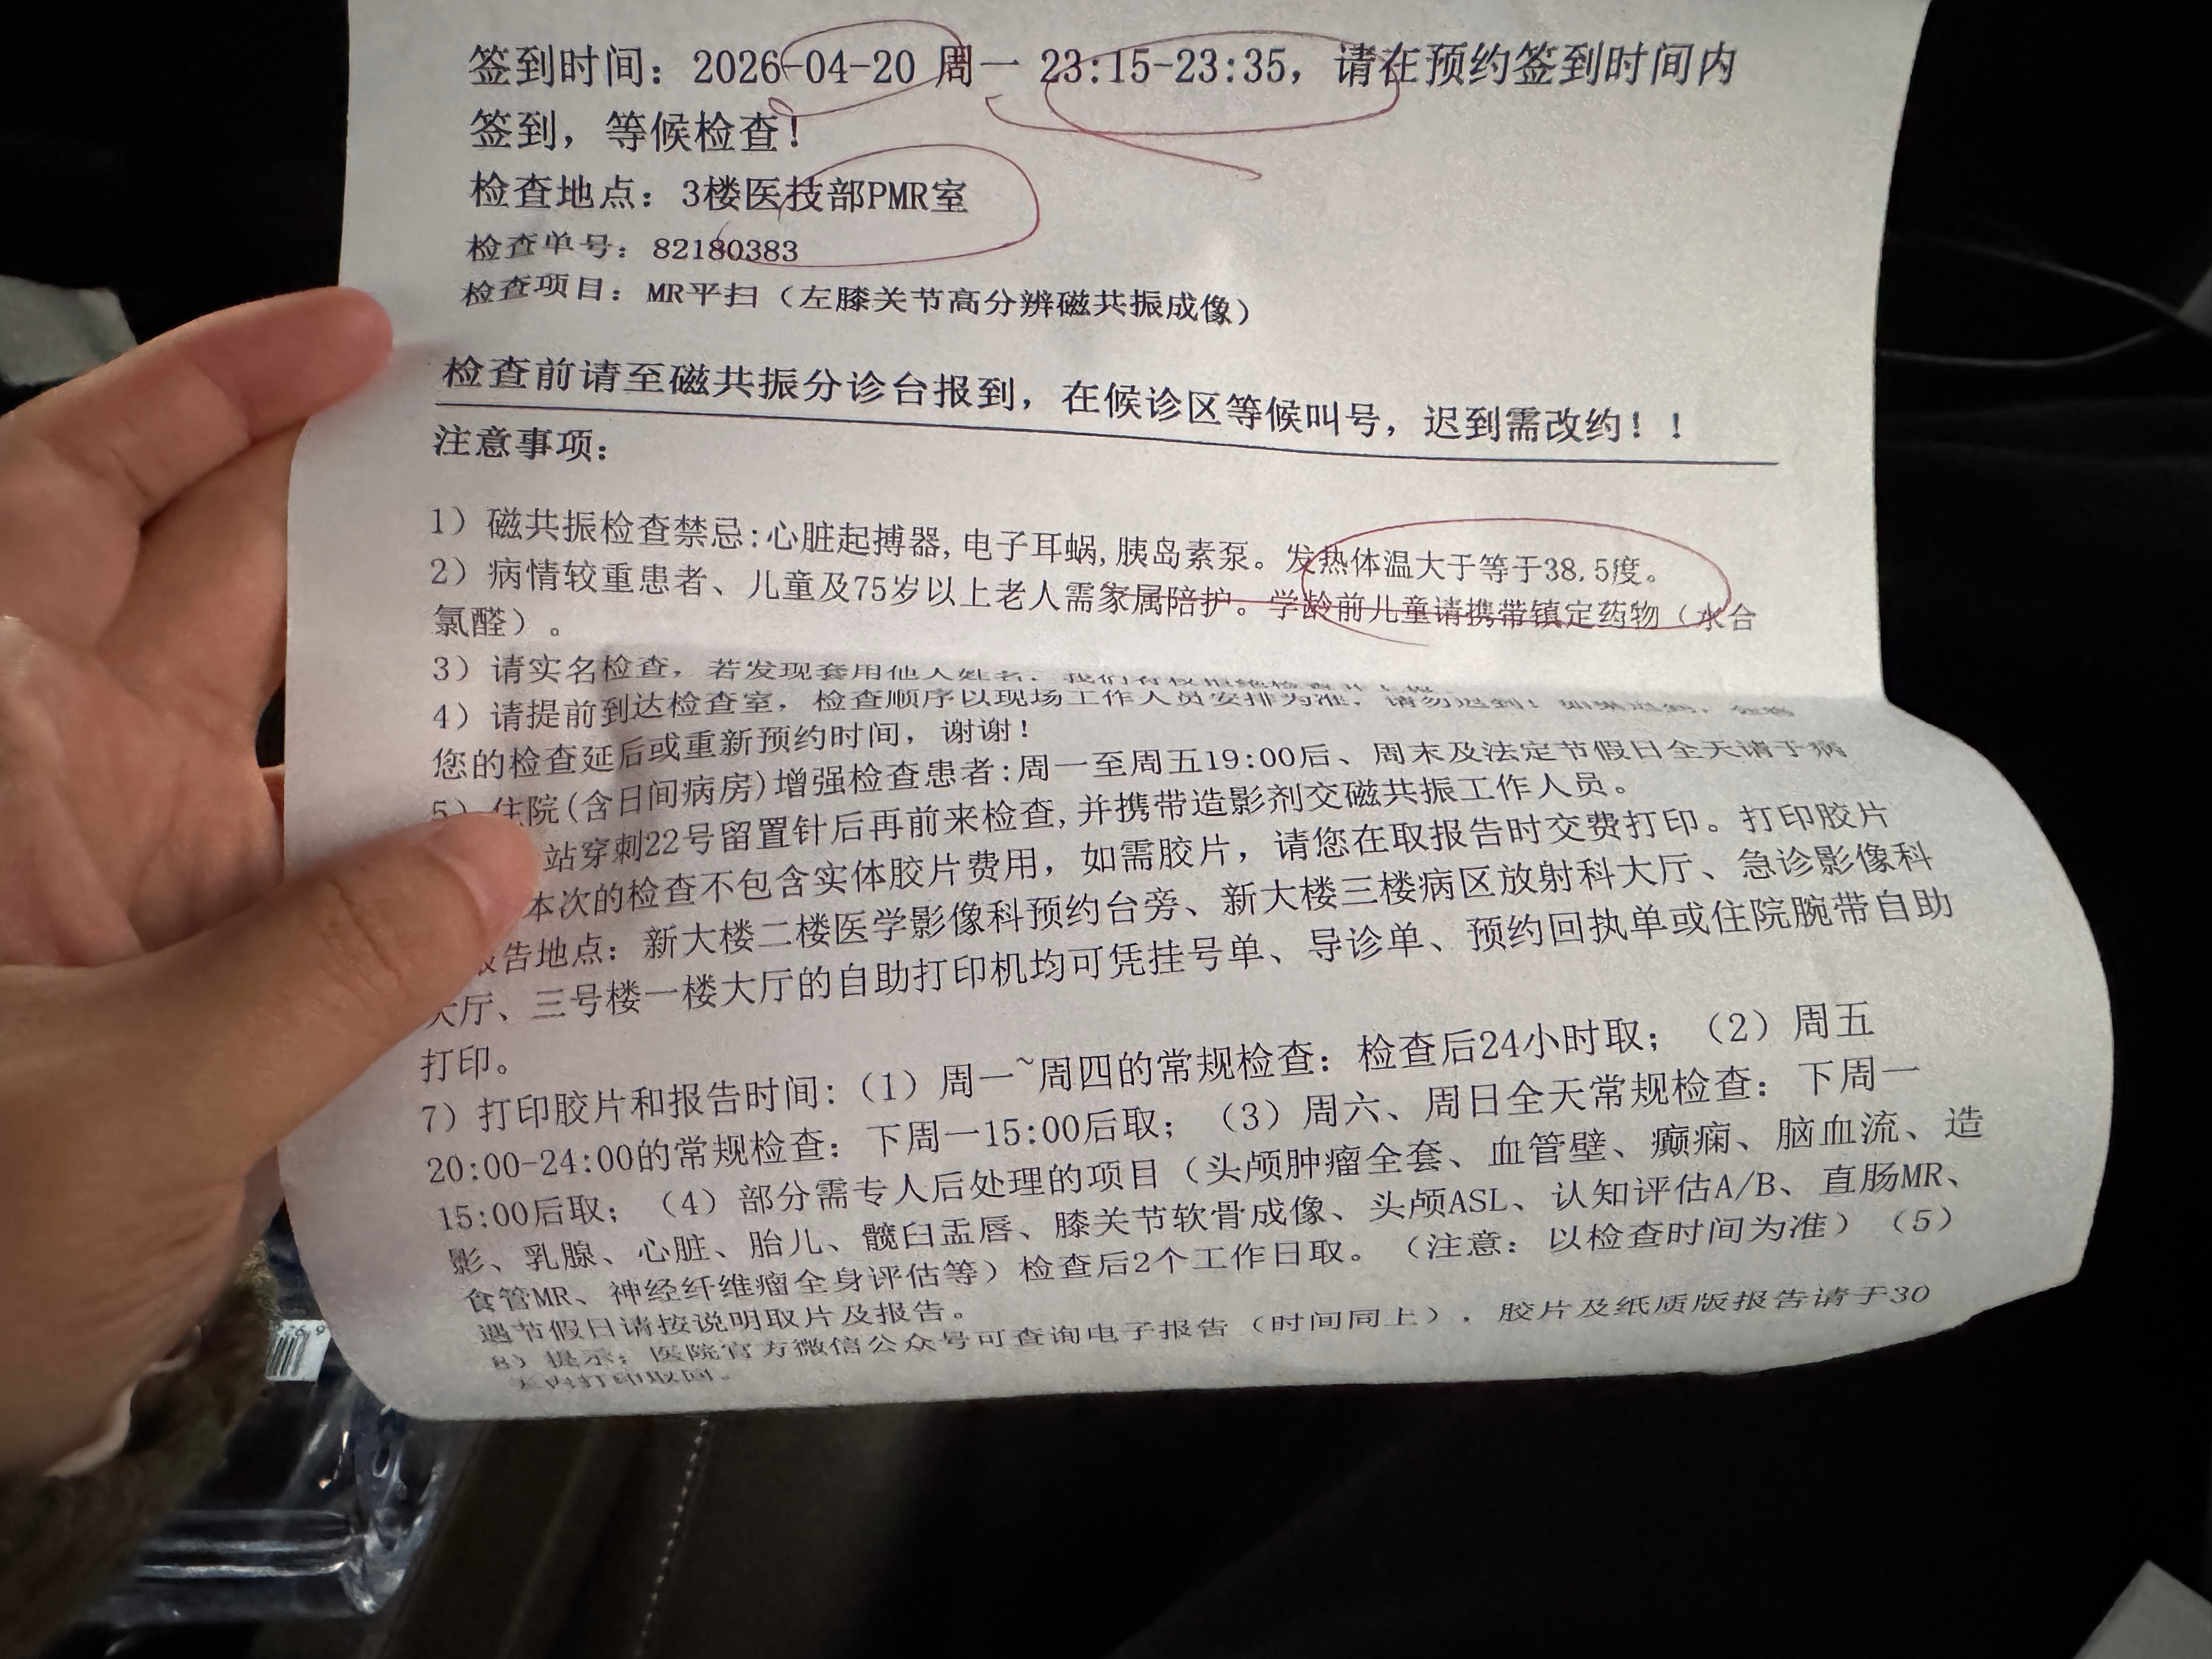 签到时间：2026-04-20 周一 23:15-23:35，请在预约签到时间内
签到，等候检查！
检查地点：3楼医技部PMR室
检查单号：82180383
检查项目：MR平扫（左膝关节高分辨磁共振成像）
检查前请至磁共振分诊台报到，在候诊区等候叫号，迟到需改约！！
注意事项：
1）磁共振检查禁忌:心脏起搏器,电子耳蜗,胰岛素泵。发热体温大于等于38.5度。
2）病情较重患者、儿童及75岁以上老人需家属陪护。学龄前儿童请携带镇定药物（水合
氯醛）。
3）请实名检查，若发现套用他人姓名，我们有权拒绝检查
4）请提前到达检查室，检查顺序以现场工作人员安排为准，请勿迟到！如果迟到，
您的检查延后或重新预约时间，谢谢！
5）住院(含日间病房)增强检查患者:周一至周五19:00后、周末及法定节假日全天请于病
站穿刺22号留置针后再前来检查,并携带造影剂交磁共振工作人员。
本次的检查不包含实体胶片费用，如需胶片，请您在取报告时交费打印。打印胶片
报告地点：新大楼二楼医学影像科预约台旁、新大楼三楼病区放射科大厅、急诊影像科
大厅、三号楼一楼大厅的自助打印机均可凭挂号单、导诊单、预约回执单或住院腕带自助
打印。
7）打印胶片和报告时间:（1）周一~周四的常规检查：检查后24小时取；（2）周五
20:00-24:00的常规检查：下周一15:00后取；（3）周六、周日全天常规检查：下周一
15:00后取；（4）部分需专人后处理的项目（头颅肿瘤全套、血管壁、癫痫、脑血流、造
影、乳腺、心脏、胎儿、髋臼盂唇、膝关节软骨成像、头颅ASL、认知评估A/B、直肠MR、
食管MR、神经纤维瘤全身评估等）检查后2个工作日取。（注意：以检查时间为准）（5）
遇节假日请按说明取片及报告。
8）提示：医院官方微信公众号可查询电子报告（时间同上），胶片及纸质版报告请于30
天内打印取回。